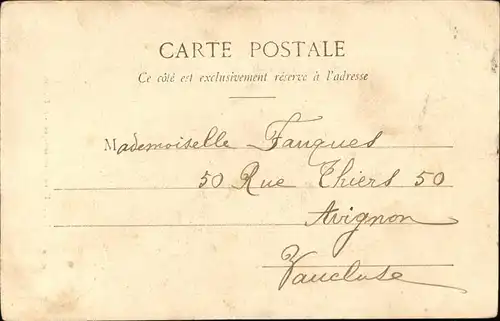 CARTE POSTALE
Ce côté est exclusivement réservé à l'adresse
Mademoiselle Fanques
50 Rue Thiers 50
Avignon
Vaucluse